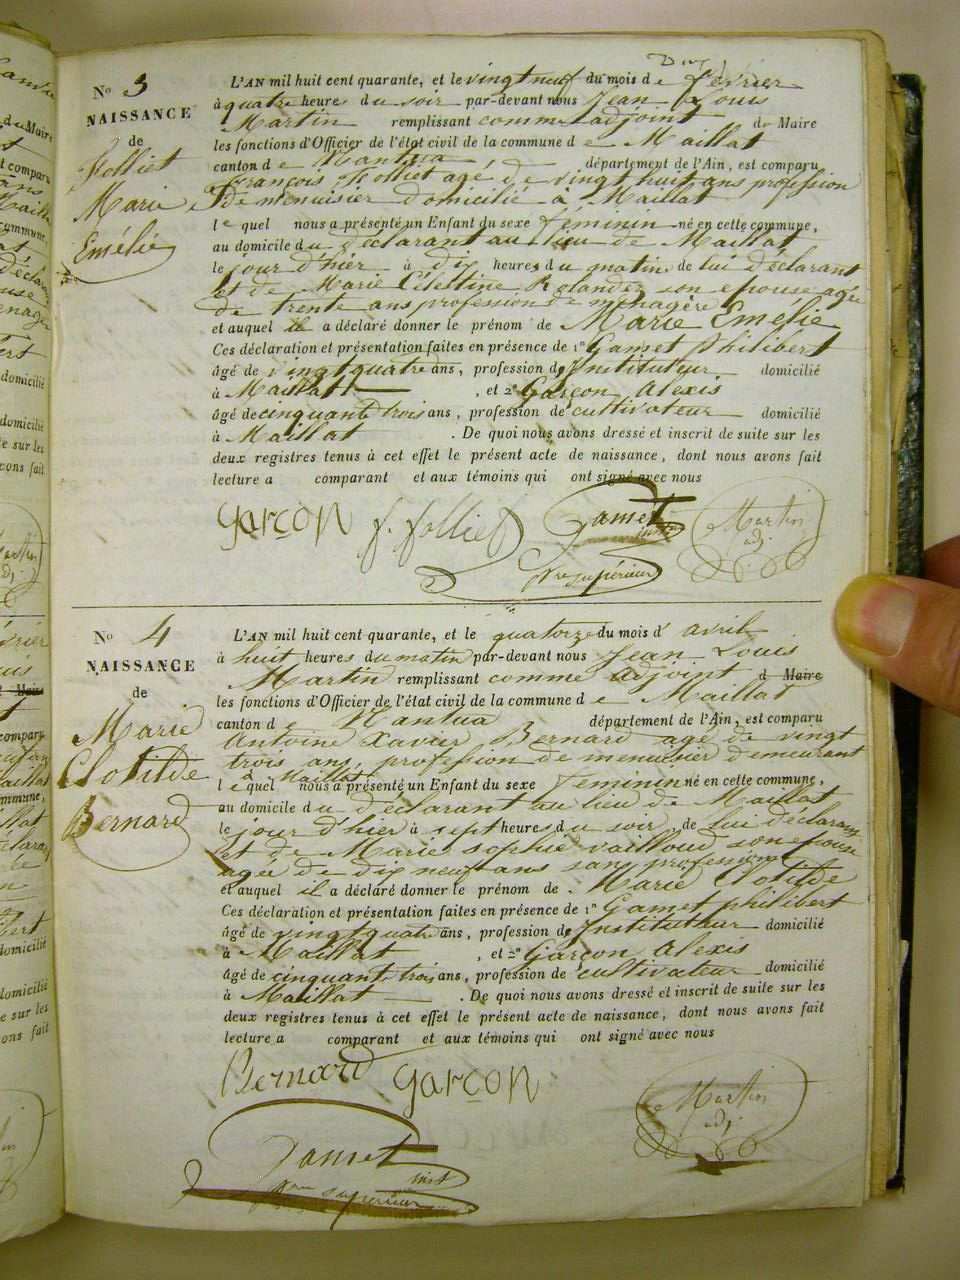 Nº 3
NAISSANCE
de
Folliet
Marie
Emélie
L'AN mil huit cent quarante, et le vingt neuf du mois de février
à quatre heures du soir par-devant nous Jean Louis
Martin remplissant comme adjoint de Maire
les fonctions d'Officier de l'état civil de la commune de Maillat
canton de Nantua département de l'Ain, est comparu
François Folliet agé de vingt huit ans profession
de menuisier domicilié à Maillat
lequel nous a présenté un Enfant du sexe féminin né en cette commune,
au domicile du déclarant au lieu de Maillat
le jour d'hier à dix heures du matin de lui déclarant
et de Marie Célestine Rolandez son epouse agée
de trente ans profession de ménagère
et auquel il a déclaré donner le prénom de Marie Emélie
Ces déclaration et présentation faites en présence de 1º Gamet philibert
âgé de vingt quatre ans, profession de Instituteur domicilié
à Maillat , et 2º Garçon Alexis
âgé de cinquante trois ans, profession de cultivateur domicilié
à Maillat . De quoi nous avons dressé et inscrit de suite sur les
deux registres tenus à cet effet le présent acte de naissance, dont nous avons fait
lecture a comparant et aux témoins qui ont signé avec nous
garçon f. folliet Gamet Martin
adj.
pre supérieur
Nº 4
NAISSANCE
de
Marie
Clotilde
Bernard
L'AN mil huit cent quarante, et le quatorze du mois d'avril
à huit heures du matin par-devant nous Jean Louis
Martin remplissant comme adjoint d Maire
les fonctions d'Officier de l'état civil de la commune de Maillat
canton de Nantua département de l'Ain, est comparu
Antoine Xavier Bernard agé de vingt
trois ans, profession de menuisier demeurant
à Maillat
lequel nous a présenté un Enfant du sexe féminin né en cette commune,
au domicile du déclarant au lieu de Maillat
le jour d'hier à sept heures du soir de lui déclarant
et de Marie sophie vailloud son epouse
agée de dix neuf ans sans profession
et auquel il a déclaré donner le prénom de Marie Clotilde
Ces déclaration et présentation faites en présence de 1º Gamet philibert
âgé de vingt quatre ans, profession de Instituteur domicilié
à Maillat , et 2º Garçon Alexis
âgé de cinquante trois ans, profession de cultivateur domicilié
à Maillat . De quoi nous avons dressé et inscrit de suite sur les
deux registres tenus à cet effet le présent acte de naissance, dont nous avons fait
lecture a comparant et aux témoins qui ont signé avec nous
Bernard garçon Martin
adj.
Gamet
inst
supérieur